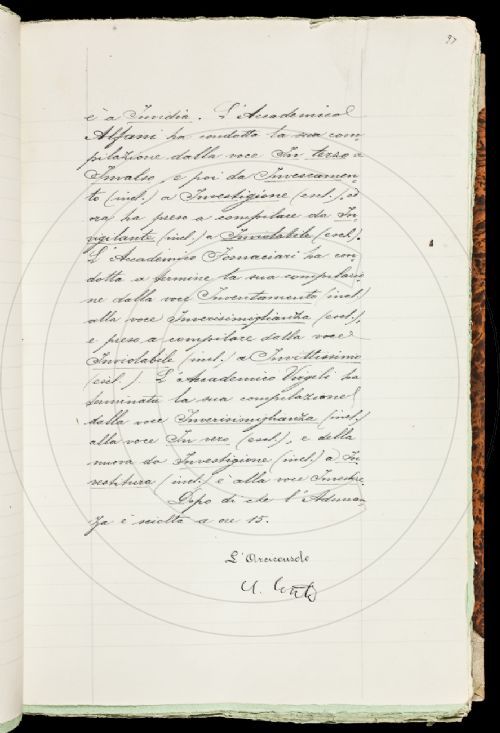 97
è a Invidia. L'Accademico
Alfani ha condotto la sua com-
pilazione dalla voce In terso a
Invalso, e poi da Invescamen-
to (incl.) a Investigione (escl.), ed
ora ha preso a compilare da In-
vigilante (incl.) a Inviolabile (escl.).
L'Accademico Fornaciari ha con-
dotta a termine la sua compilazio-
ne dalla voce Inventamento (incl.)
alla voce Inverisimiglianza (escl.),
e preso a compilare dalla voce
Inviolabile (incl.) a Invittissimo
(escl.). L'Accademico Virgili ha
terminata la sua compilazione
dalla voce Inverisimiglianza (incl.)
alla voce In vero (escl.), e della
nuova da Investigione (incl.) a In-
vestitura (incl.) e alla voce Investire.
Dopo di che l'Adunan-
za è sciolta a ore 15.
L'Arciconsolo